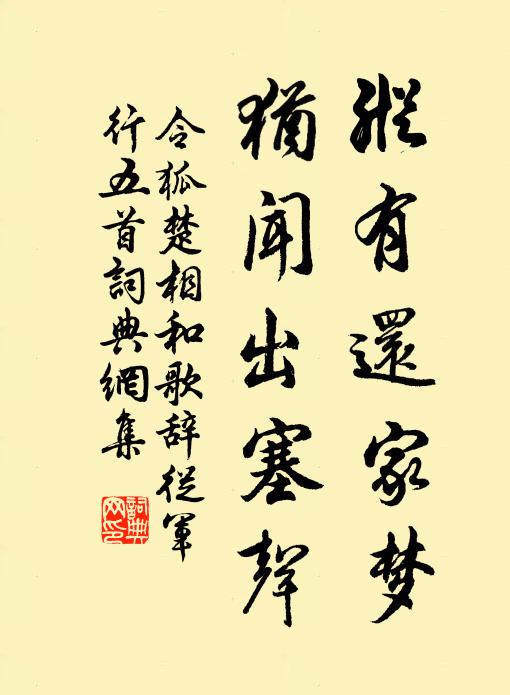 縱有還家梦
猶闻出塞聲
令狐楚相和歌辞從軍
行五首詞典網集
詞典
网印